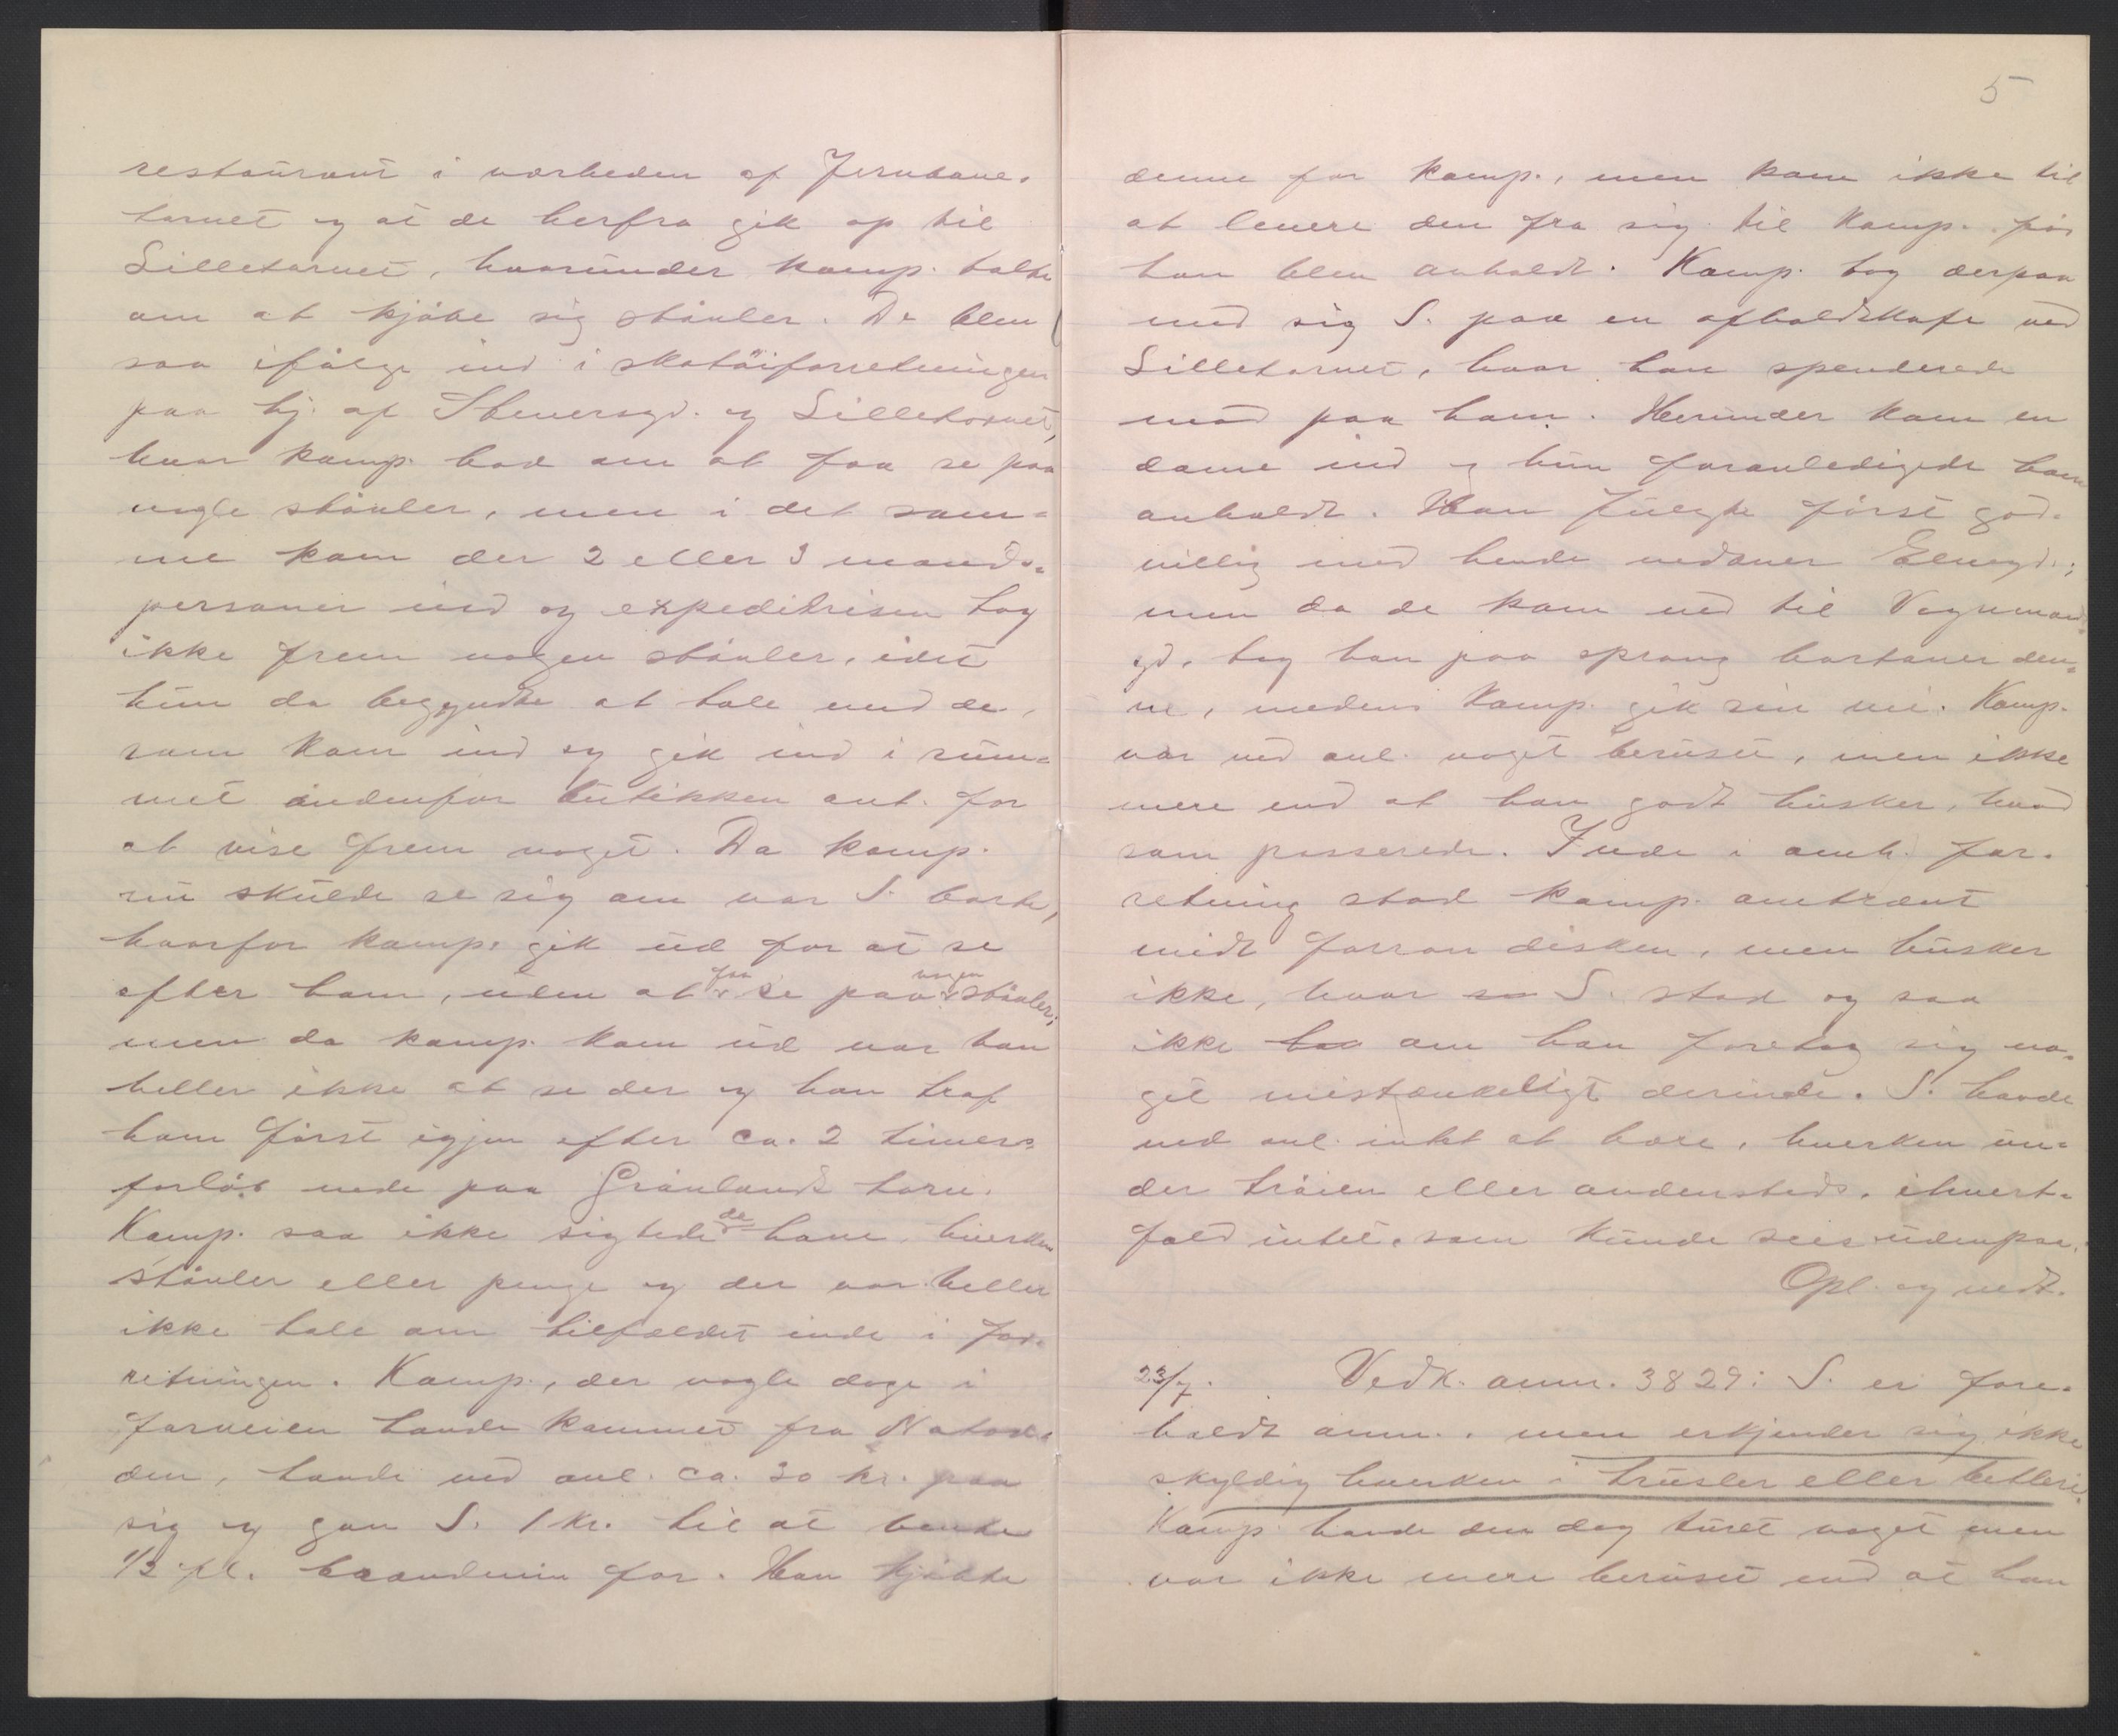 restaurant i nærheden af Jernbane-
torvet og at de herfra gik op til
Lilletorvet, hvorunder komp. talte
om at kjøbe sig støvler. De blev
saa ifølge ind i skotøiforretningen
paa hj. af Stenersgd. og Lilletorvet,
hvor komp. bad om at faa se paa
nogle støvler, men i det sam-
me kom der 2 eller 3 mands-
personer ind og expeditrisen tog
ikke frem nogen støvler, idet
hun da begyndte at tale med de,
som kom ind og gik ind i rum-
met indenfor butikken ant. for
at vise frem noget. Da komp.
nu skulde se sig om var S. borte,
hvorfor komp. gik ud for at se
efter ham, uden at faa se paa nogen støvler;
men da komp. kom ud var han
heller ikke at se der og han traf
ham først igjen efter ca. 2 timers
forløb nede paa Grønlands torv.
Komp. saa ikke sigtede have hverken
støvler eller penge og der var heller
ikke tale om tilfældet inde i for-
retningen. Komp., der nogle dage i
forveien havde kommet fra Notod-
den, havde ved anl. ca. 30 kr. paa
sig og gav S. 1 kr. til at hente
1/2 fl. brændevin for. Han kjøbte
5
denne for komp., men kom ikke til
at levere den fra sig til komp. før
han blev anholdt. Komp. tog derpaa
med sig S. paa en afholdskafe ved
Lilletorvet, hvor han spenderede
mad paa ham. Herunder kom en
dame ind og hun foranledigede ham
anholdt. Han fulgte først god-
villig med hende nedover Elvegd.;
men da de kom ned til Vognmands-
gd. tog han paa sprang bortover den-
ne, medens komp. gik sin vei. Komp.
var ved anl. noget beruset, men ikke
mere end at han godt husker, hvad
som passerede. Inde i omh. for-
retning stod komp. omtrent
midt foran disken, men husker
ikke, hvor S. stod og saa
ikke om han foretog sig no-
get mistænkeligt derinde. S. havde
ved anl. intet at bære, hverken un-
der trøien eller andensteds, ihvert-
fald intet, som kunde sees udenpaa.
Opl. og vedt.
23/7. Vedk. anm. 3829: S. er fore-
holdt anm., men erkjender sig ikke
skyldig hverken i trusler eller betleri.
Komp. havde den dag turet noget men
var ikke mere beruset end at han